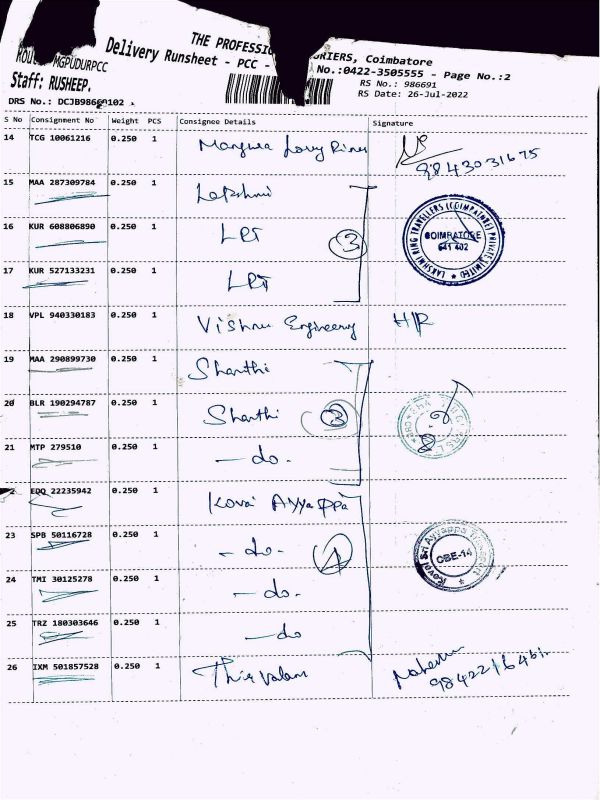 THE PROFESSIO URIERS, Coimbatore
Delivery Runsheet - PCC -
No.:0422-3505555 - Page No.:2
MGPUDURPCC
RS No.: 986691
Staff: RUSHEEP.
RS Date: 26-Jul-2022
DRS No.: DCJB98660102
S No Consignment No Weight PCS Consignee Details Signature
14 TCG 10061216 0.250 1
9843031675
15 MAA 287309784 0.250 1 Lakshmi
16 KUR 608806890 0.250 1 LRT 3
LAKSHMI RING TRAVELLERS (COIMBATORE) PRIVATE LIMITED
COIMBATORE
641 402
17 KUR 527133231 0.250 1 LRT
18 VPL 940330183 0.250 1 Vishnu Engineery H/R
19 MAA 290899730 0.250 1 Shanthi
20 BLR 190294787 0.250 1 Shanthi 3
21 MTP 279510 0.250 1 - do -
EDQ 22235942 0.250 1 Kovai Ayyappa
23 SPB 50116728 0.250 1 - do - 4
Kovai Sri Ayyappa
CBE-14
24 TMI 30125278 0.250 1 - do -
25 TRZ 180303646 0.250 1 - do
26 IXM 501857528 0.250 1